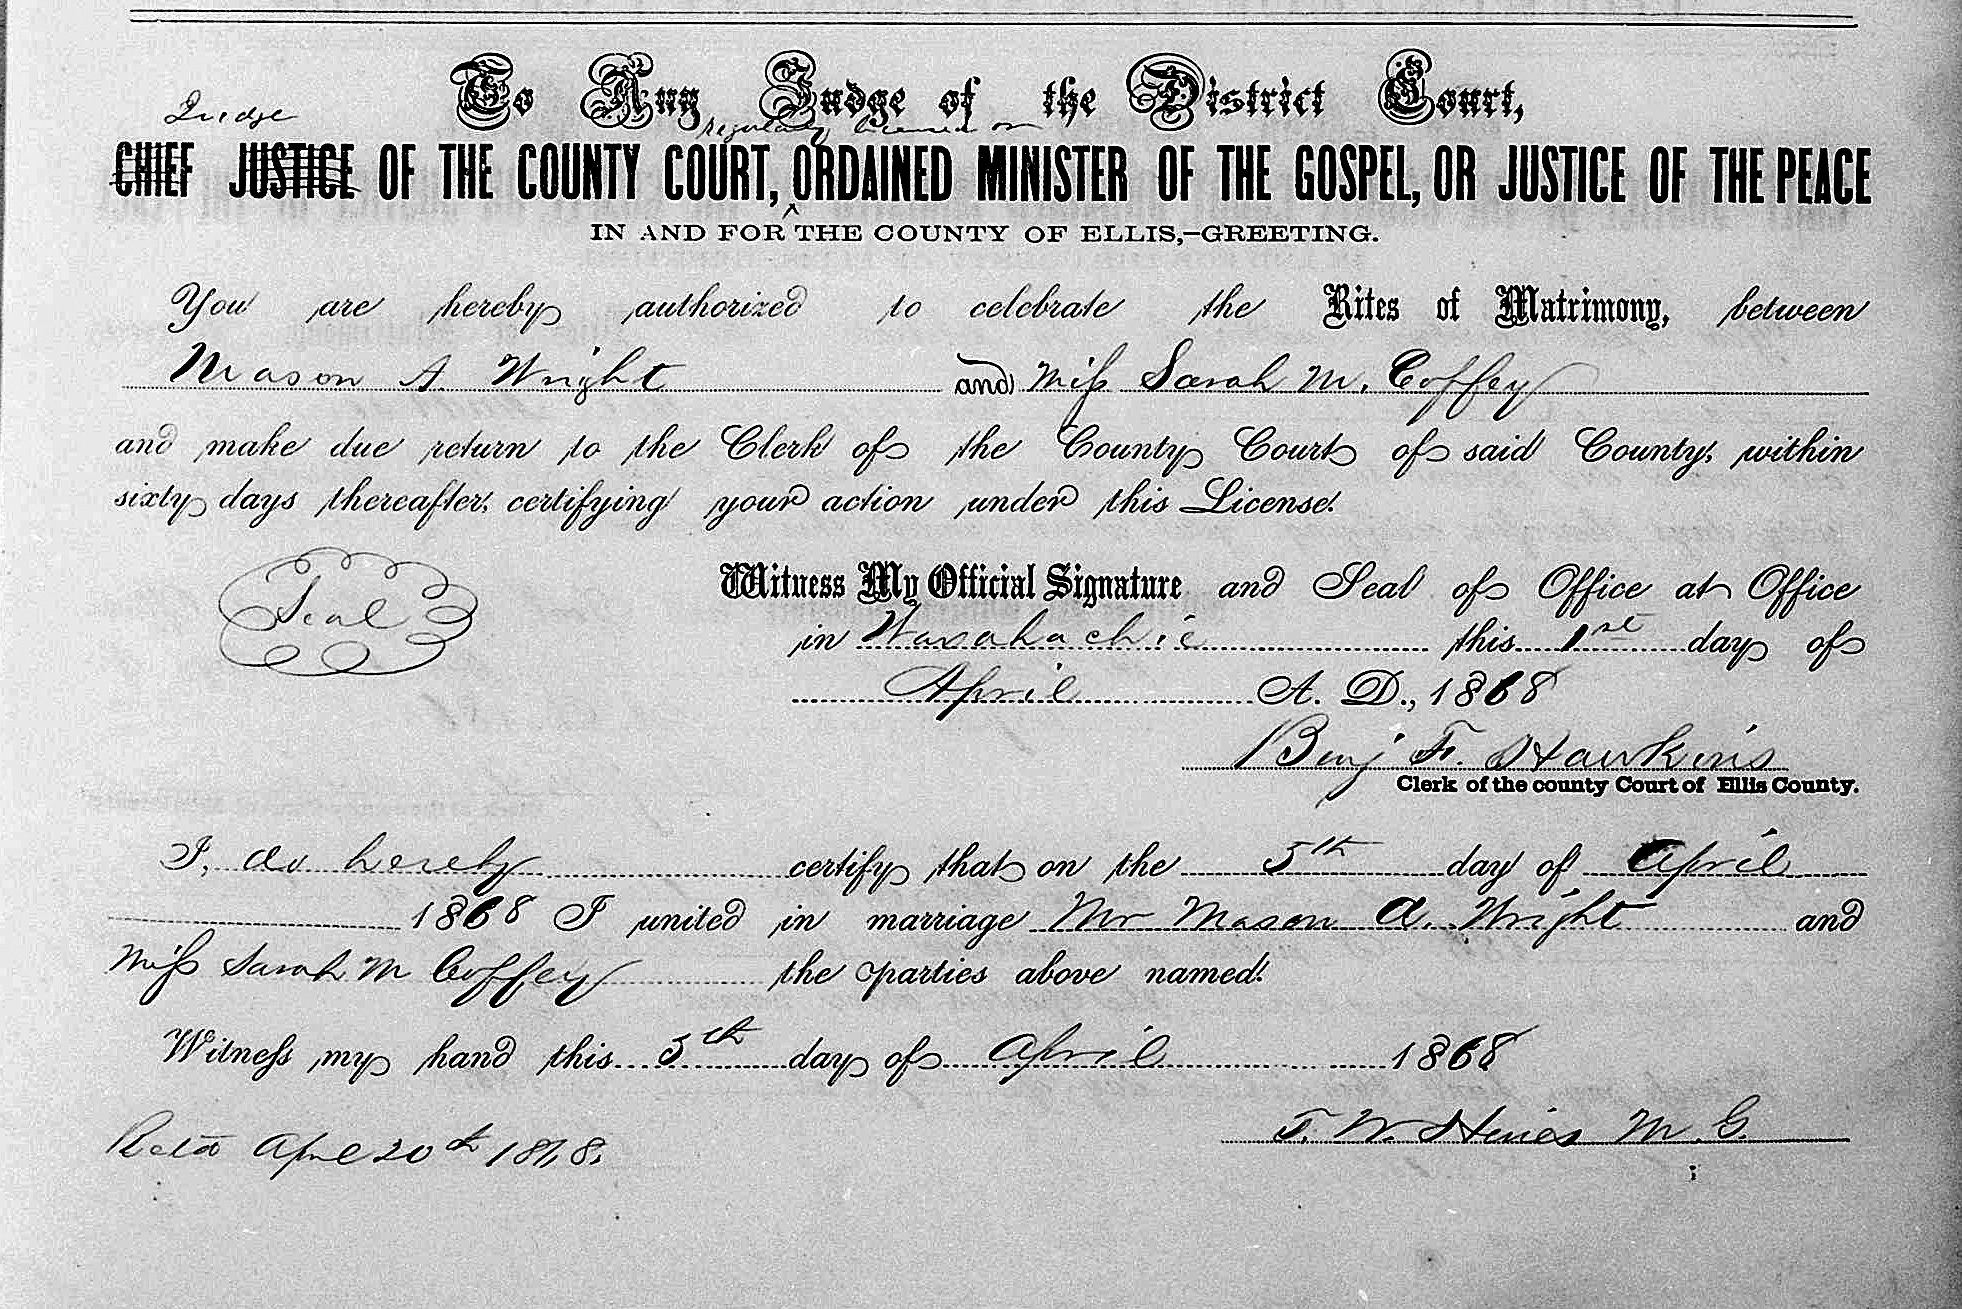 To Any Judge of the District Court,
Judge
regularly licensed or
CHIEF JUSTICE OF THE COUNTY COURT, ORDAINED MINISTER OF THE GOSPEL, OR JUSTICE OF THE PEACE
IN AND FOR THE COUNTY OF ELLIS,—GREETING.
You are hereby authorized to celebrate the Rites of Matrimony, between
Mason A. Wright and Miss Sarah M. Coffey
and make due return to the Clerk of the County Court of said County, within
sixty days thereafter, certifying your action under this License.
Seal
Witness My Official Signature and Seal of Office at Office
in Waxahachie this 1st day of
April A. D., 1868
Benj F. Hawkins
Clerk of the county Court of Ellis County.
I, do hereby certify that on the 5th day of April
1868 I united in marriage Mr Mason A. Wright and
Miss Sarah M Coffey the parties above named.
Witness my hand this 5th day of April 1868
T. W. Hines M. G.
April 20th 1868.